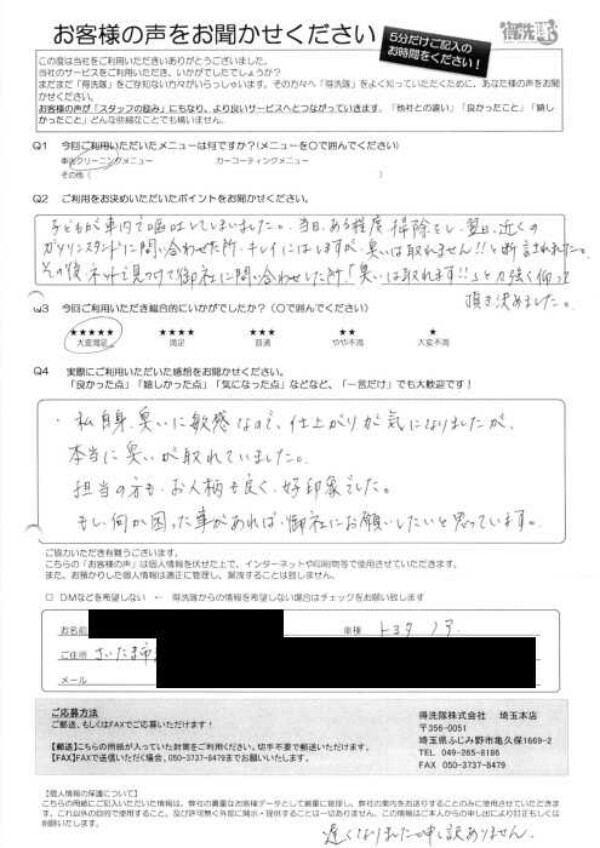 お客様の声をお聞かせください
5分だけご記入の
お時間をください!
得洗隊
この度は当社をご利用いただきありがとうございました。
当社のサービスをご利用いただき、いかがでしたでしょうか?
まだまだ「得洗隊」をご存知ない方々がいらっしゃいます。その方々へ「得洗隊」をよく知っていただくために、あなた様の声をお聞
かせください。
お客様の声が「スタッフの励み」にもなり、より良いサービスへとつながっていきます。「他社との違い」「良かったこと」「嬉し
かったこと」どんな些細なことでも構いません。
Q1 今回ご利用いただいたメニューは何ですか?(メニューを〇で囲んでください)
車内クリーニングメニュー カーコーティングメニュー
その他( )
Q2 ご利用をお決めいただいたポイントをお聞かせください。
子どもが車内で嘔吐してしまいました。当日、ある程度掃除をし、翌日、近くの
ガソリンスタンドに問い合わせた所、キレイにはしますが、臭いは取れません!!と断言されました。
その後、ネットで見つけて御社に問い合わせした所、「臭いは取れます!!」と力強く仰って
頂き決めました。
Q3 今回ご利用いただき総合的にいかがでしたか?(〇で囲んでください)
★★★★★ ★★★★ ★★★ ★★ ★
大変満足 満足 普通 やや不満 大変不満
Q4 実際にご利用いただいた感想をお聞かせください。
「良かった点」「嬉しかった点」「気になった点」などなど、「一言だけ」でも大歓迎です!
・私自身、臭いに敏感なので、仕上がりが気になりましたが、
本当に臭いが取れていました。
担当の方も、お人柄も良く、好印象でした。
もし、何か困った事があれば、御社にお願いしたいと思っています。
ご協力いただき有難うございます。
こちらの「お客様の声」は個人情報を伏せた上で、インターネットや印刷物等で使用させていただきます。
また、お預かりした個人情報は適正に管理し、漏洩することは致しません。
□ DMなどを希望しない ← 得洗隊からの情報を希望しない場合はチェックをお願い致します
お名前 車種 トヨタ ノア
ご住所 さいたま市
メール
ご応募方法
ご郵送、もしくはFAXでご応募いただけます!
【郵送】こちらの用紙が入っていた封筒をご利用ください。切手不要で郵送いただけます。
【FAX】FAXで送信いただく場合、050-3737-8479までお願いいたします。
得洗隊株式会社 埼玉本店
〒356-0051
埼玉県ふじみ野市亀久保1669-2
TEL 049-265-8186
FAX 050-3737-8479
【個人情報の保護について】
こちらの用紙にご記入いただいた情報は、弊社の貴重なお客様データとして厳重に管理し、弊社の案内をお送りすることのみに使用させていただきま
す。これ以外の目的で使用すること、及び許可無く外部に開示・提供することは一切ありません。この情報はご本人からの申し出により訂正もしくは
削除いたします。
遅くなりました申し訳ありません。